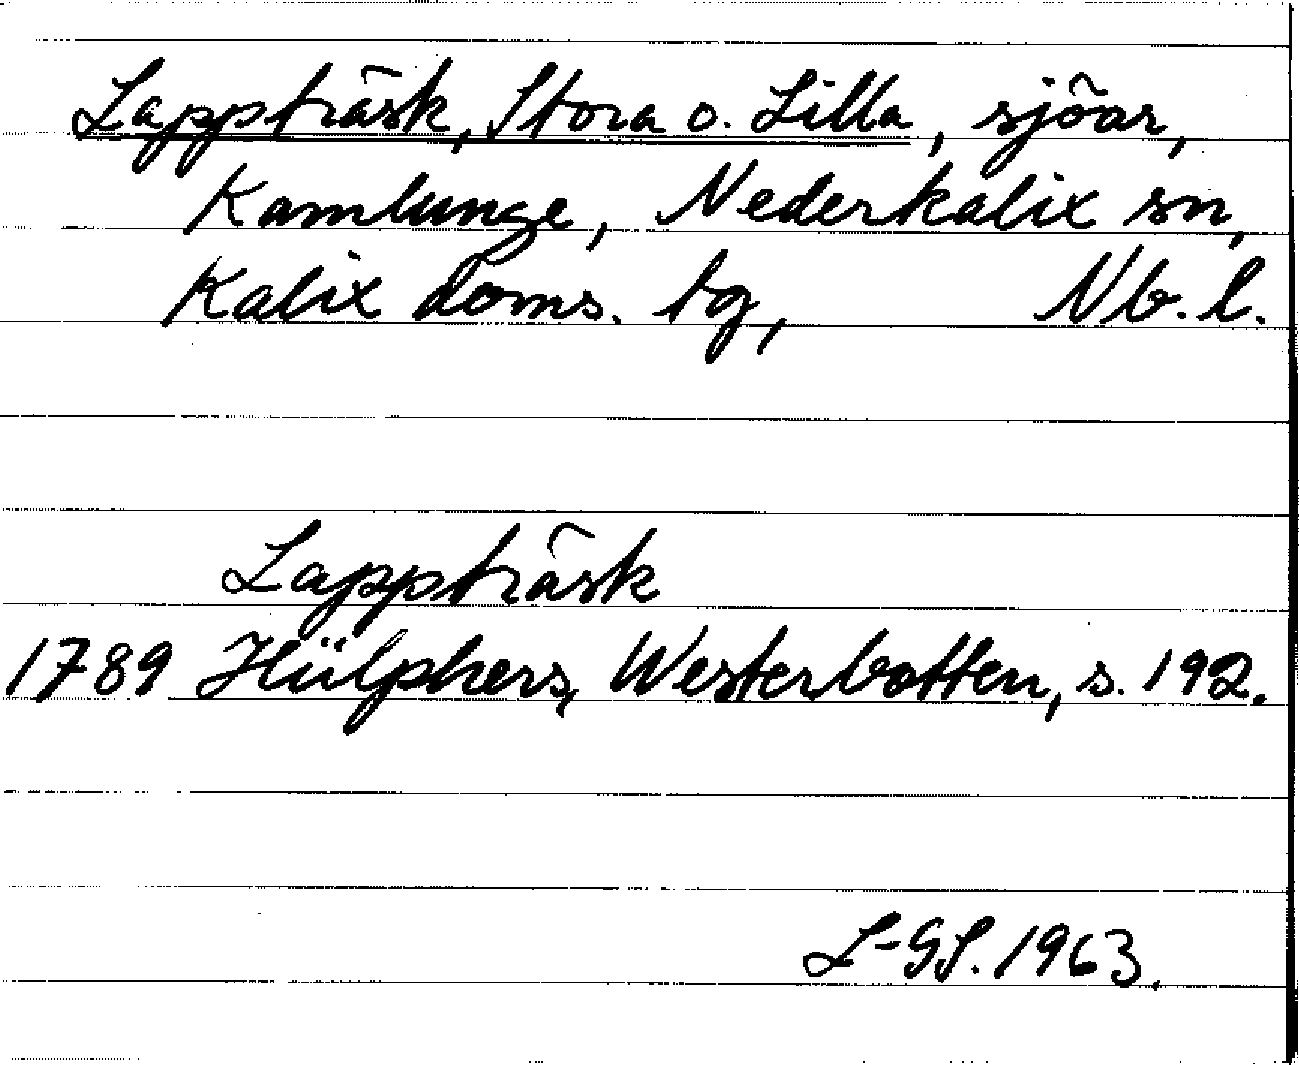 Lappträsk, Stora o. Lilla, sjöar,
Kamlunge, Nederkalix sn,
Kalix doms. tg, Nb. l.
Lappträsk
1789 Hülphers, Westerbotten, s. 192.
L-GS. 1963.